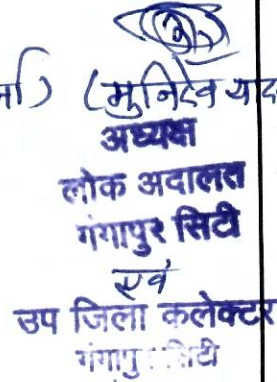 (मुनिदेव याद
अध्यक्ष
लोक अदालत
गंगापुर सिटी
एवं
उप जिला कलेक्टर
गंगापुर सिटी